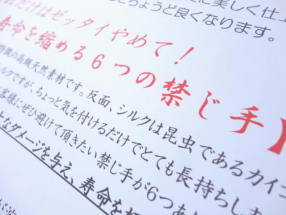 に美しく仕上
ちょうど良くなります。
だけはゼッタイやめて！
寿命を縮める６つの禁じ手】
の高級天然素材です。反面、シルクは昆虫であるカイコ
ものですが、ちょっと気を付けるだけでとても長持ちしま
客様にぜひ避けて頂きたい禁じ手が６つあ
なダメージを与え、寿命を